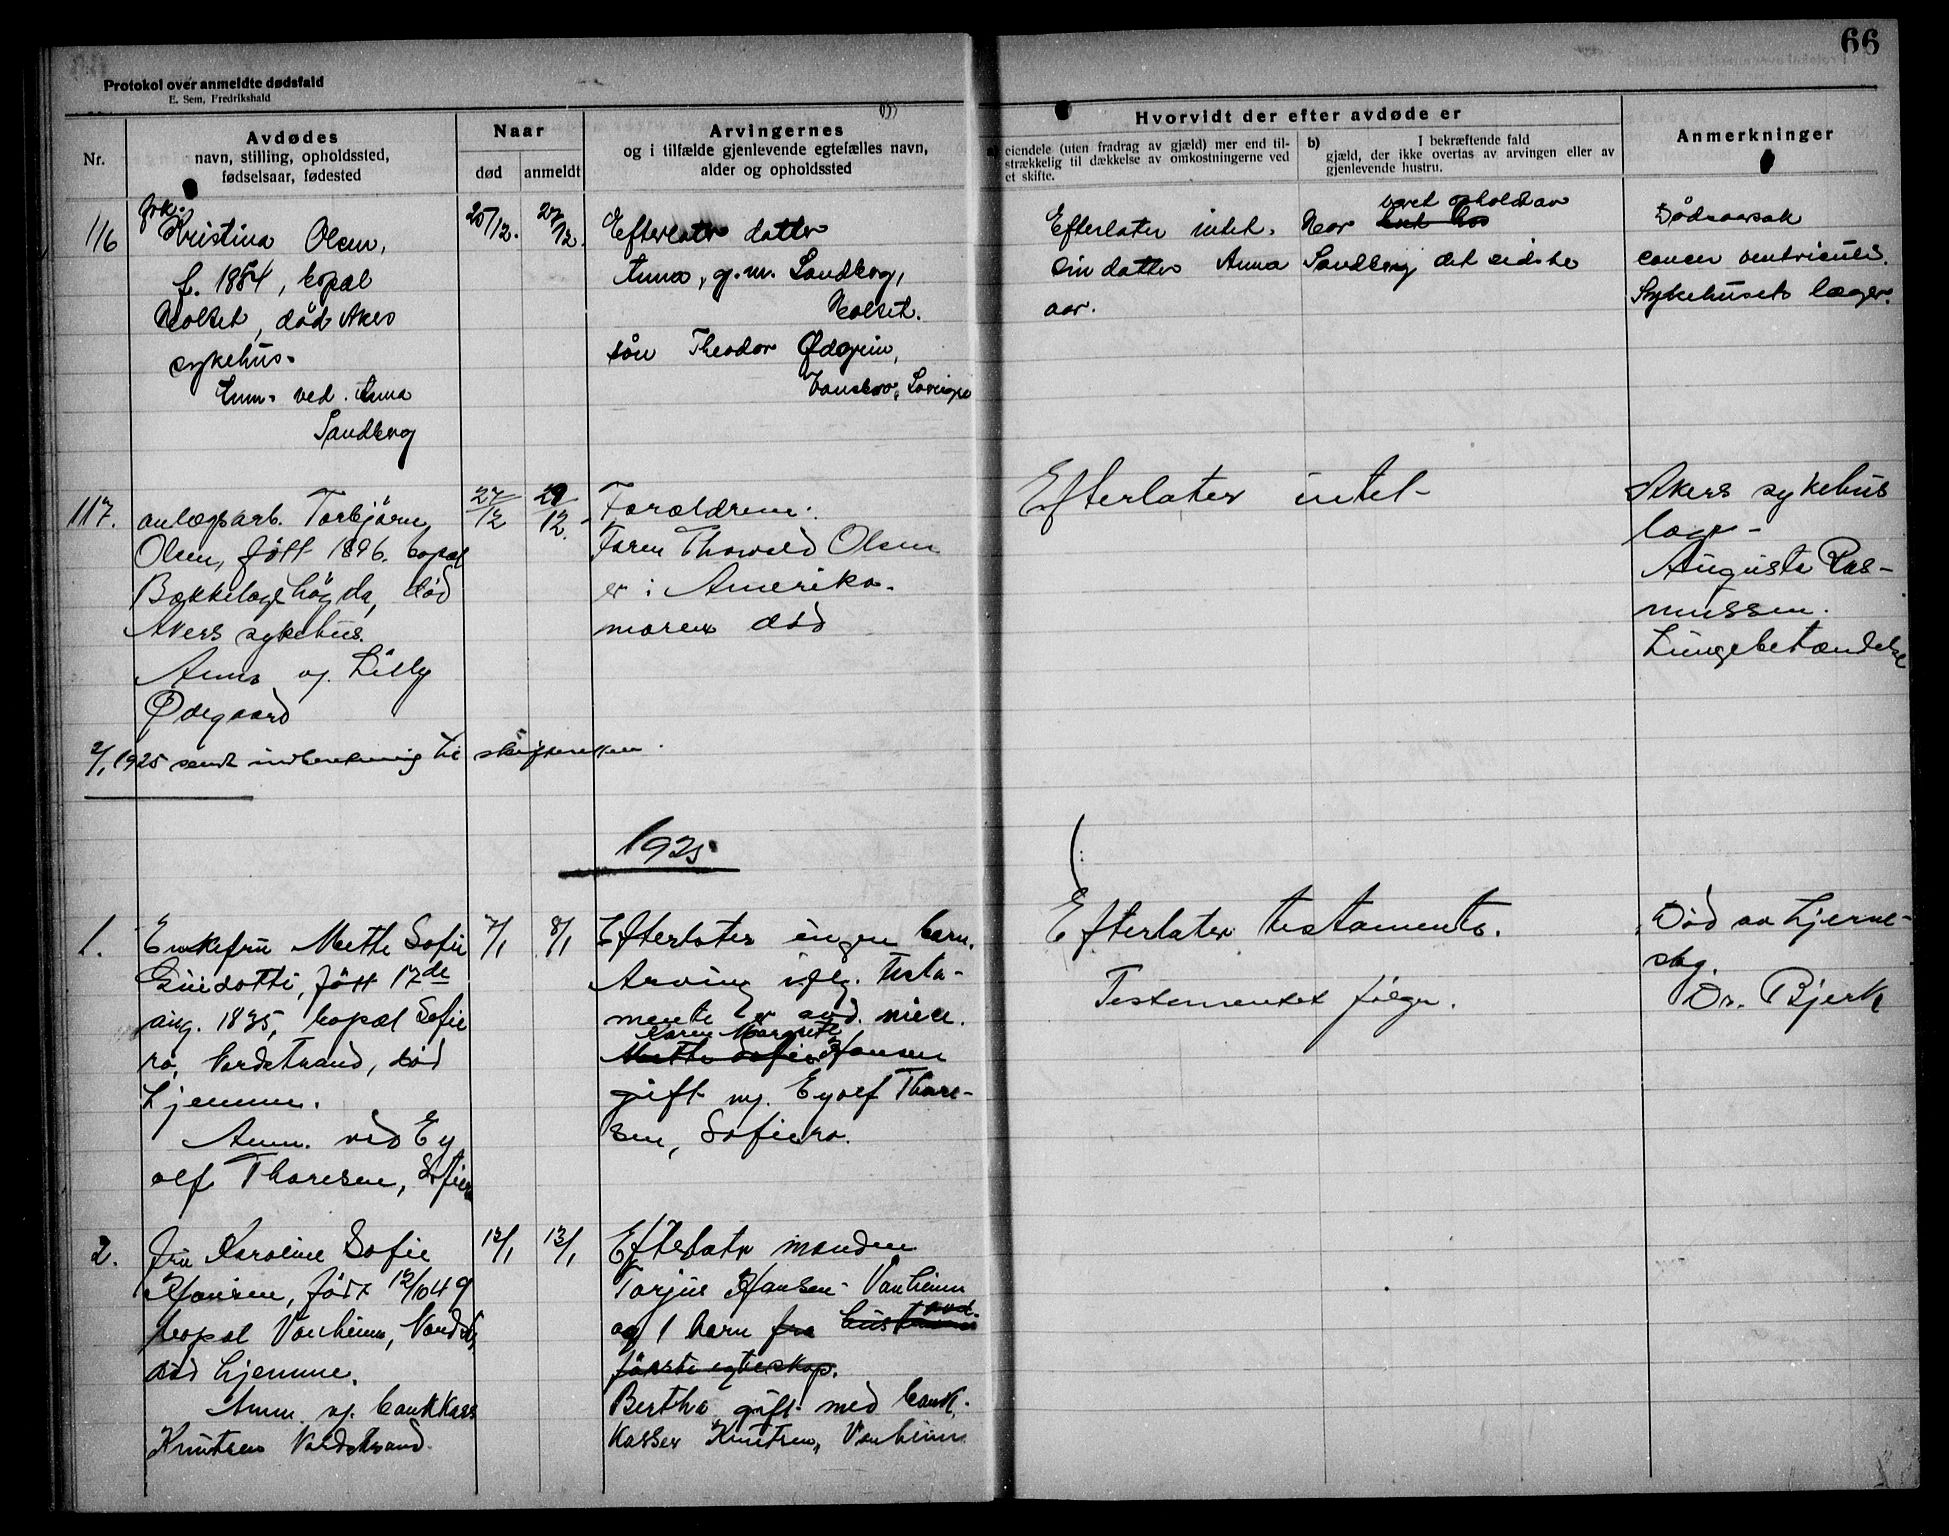 66
Protokol over anmeldte dødsfald
E. Sem, Fredrikshald
Nr.
Avdødes
navn, stilling, opholdssted,
fødselsaar, fødested
Naar
død
anmeldt
Arvingernes
og i tilfælde gjenlevende egtefælles navn,
alder og opholdssted
Hvorvidt der efter avdøde er
eiendele (uten fradrag av gjæld) mer end til-
strækkelig til dækkelse av omkostningerne ved
et skifte.
b) I bekræftende fald
gjæld, der ikke overtas av arvingen eller av
gjenlevende hustru.
Anmerkninger
116
frk.
Kristina Olsen,
f. 1854, bopæl
Holset, død Akers
sykehus.
Anm. ved. Anna
Sandberg
25/12.
27/12.
Efterlater datter
Anna, g.m. Sandberg,
Holset.
søn Theodor
Efterlater intet. Har været opholdt av
sin datter Anna Sandberg det sidste
aar.
Dødsaarsak
cancer ventriculi.
Sykehusets læger.
117.
anlægsarb. Torbjørn
Olsen, født 1896. bopæl
Bækkelagshøgda, død
Akers sykehus.
Anm. v. Lilly
Ødegaard
27/12
29/12.
Forældrene.
Faren Thorvald Olsen
er i Amerika.
moren død
Efterlater intet-
Akers sykehus
læge-
Augusta Ras-
mussen.
Lungebetændelse
2/1 1925 sendt indberetning til skifteretten.
1925
1.
Enkefru Mette Sofie
Guidotti, født 17de
aug. 1835, bopæl Sofie
ro, Nordstrand, død
hjemme.
Anm. ved Ey
olf Thoresen, Sofiero
7/1
8/1
Efterlater ingen barn.
Arving iflg. testa-
mente er avd. niece.
Karen Margrete
Mette Sofie Hansen
gift m. Eyolf Thore-
sen, Sofiero.
Efterlater testamente.
Testamentet følger.
Død av hjerne-
slag.
Dr. Bjerk
2.
fru Karoline Sofie
Hansen, født 12/10 49
bopæl Vanheim, Nordstr,
død hjemme.
Anm. v. bankkass
Knutsen Nordstrand.
12/1
13/1
Efterlater manden
Torjus Hansen - Vanheim
og 1 barn fra
første egteskap.
Bertha gift med bank.
kasser Knutsen, Vanheim